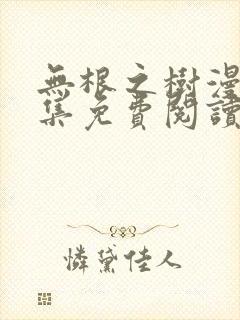 無根之樹漫
集免費閱讀
憐黛佳人